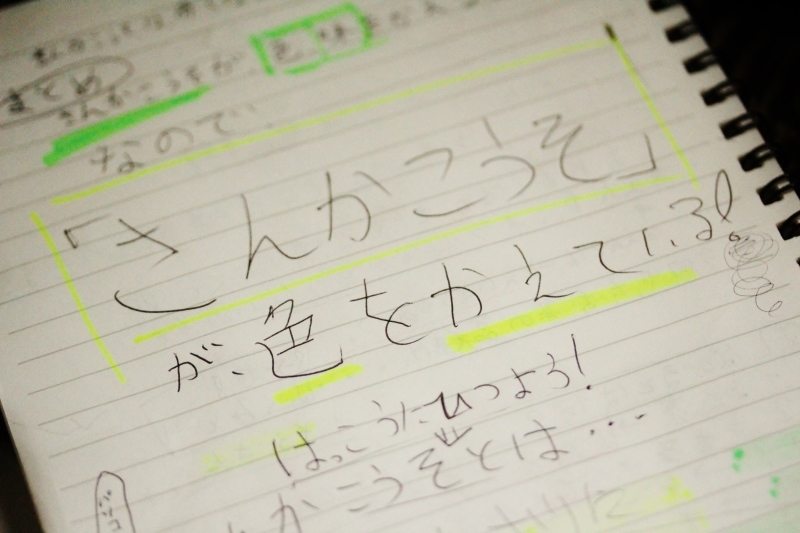 まとめ
さんかこうそが 色,味
なので、
「さんかこうそ」
が、色をかえている!
はっこうにひつよう!
かこうそとは…